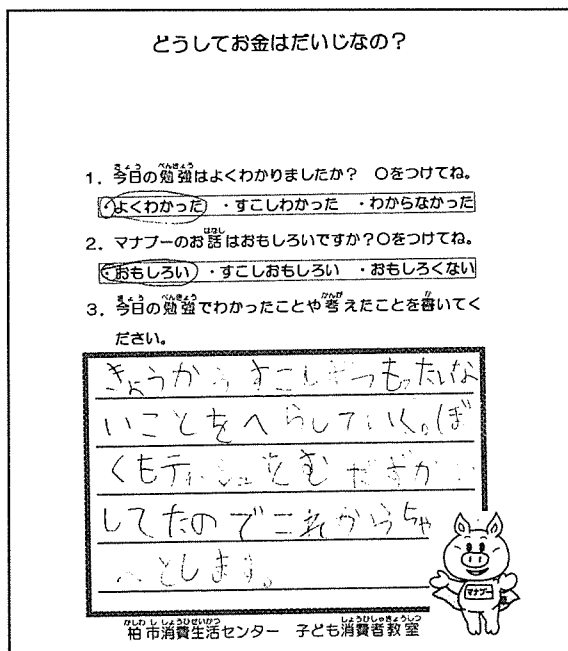 どうしてお金はだいじなの？
1．今日の勉強はよくわかりましたか？　○をつけてね。
・よくわかった　・すこしわかった　・わからなかった
2．マナブーのお話はおもしろいですか？○をつけてね。
・おもしろい　・すこしおもしろい　・おもしろくない
3．今日の勉強でわかったことや考えたことを書いてく
ださい。
きょうからすこしずつもったいな
いことをへらしていく。ぼ
くもティッシュをむだずかい
してたのでこれからちゃ
んとします。
マナブー
柏市消費生活センター　子ども消費者教室